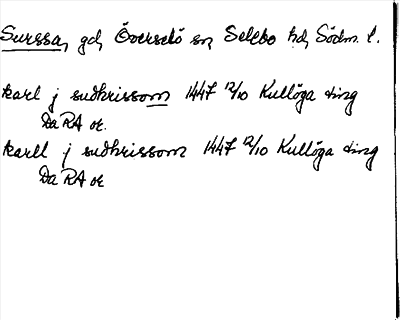 Surssa, gd, Överselö sn Selebo hd, Södm. l.
karl j sudhrissom 1447 12/10 Kullöga ting
Da RA or.
karll j sudhrissom 1447 12/10 Kullöga ting
Da RA or